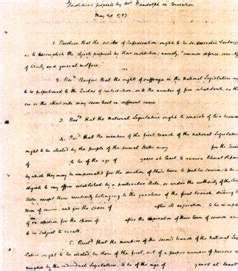 Resolutions proposed by Mr Randolph in Convention
May 29. 1787
1. Resolved that the articles of Confederation ought to be so corrected & enlarged
as to accomplish the objects proposed by their institution; namely, "common defence, security
of liberty and general welfare."
2. Resd. therefore that the rights of suffrage in the National Legislature ought
to be proportioned to the Quotas of contribution, or to the number of free inhabitants, as the
one or the other rule may seem best in different cases.
3. Resd. that the National Legislature ought to consist of two branches.
4. Resd. that the members of the first branch of the National Legislature
ought to be elected by the people of the several States every for the term
of to be of the age of years at least, to receive liberal stipends
by which they may be compensated for the devotion of their time to public service; to be
eligible to any office established by a particular State, or under the authority of the
States, except those
term of service, and for the space of after its expiration; to be
of for the space of after the expiration of their term of service,
to be subject to recall.
5. Resold. that the members of the second branch of the National Legis-
lature ought to be elected by those of the first, out of a proper number of persons
by the individual Legislatures, to be of the age of years at least